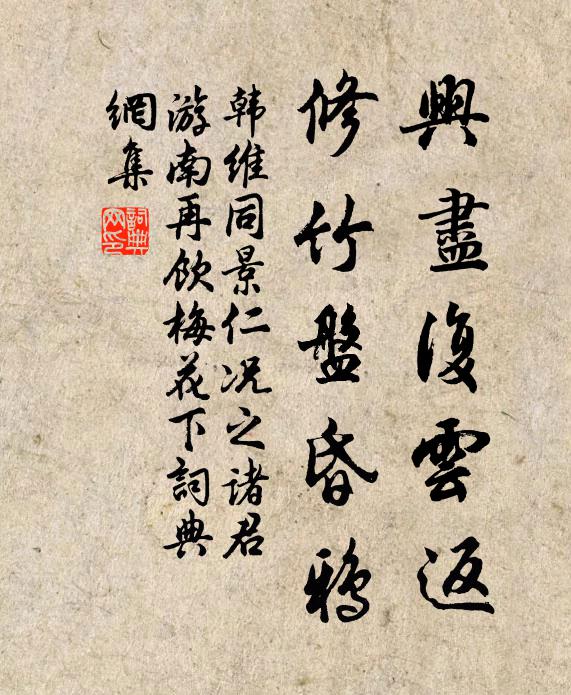 興盡復雲返
修竹盤昏鴉
韩維同景仁况之諸君
游南再飲梅花下詞典
網集
詞典網印